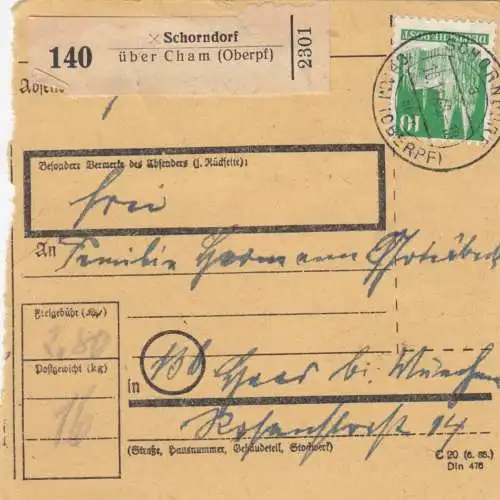 140
× Schorndorf
über Cham (Oberpf)
2301
DEUTSCHE POST
10
SCHORNDORF
(OBERPF)
Absen
Besondere Vermerke des Absenders (s. Rückseite):
frei
An Familie Hermann
Freigebühr (Rpf)
2,80
Postgewicht (kg)
16
in 13b Haar bei München
Rosenstraße 14
(Straße, Hausnummer, Gebäudeteil, Stockwerk)
C 20 (6. 85.)
Din 476